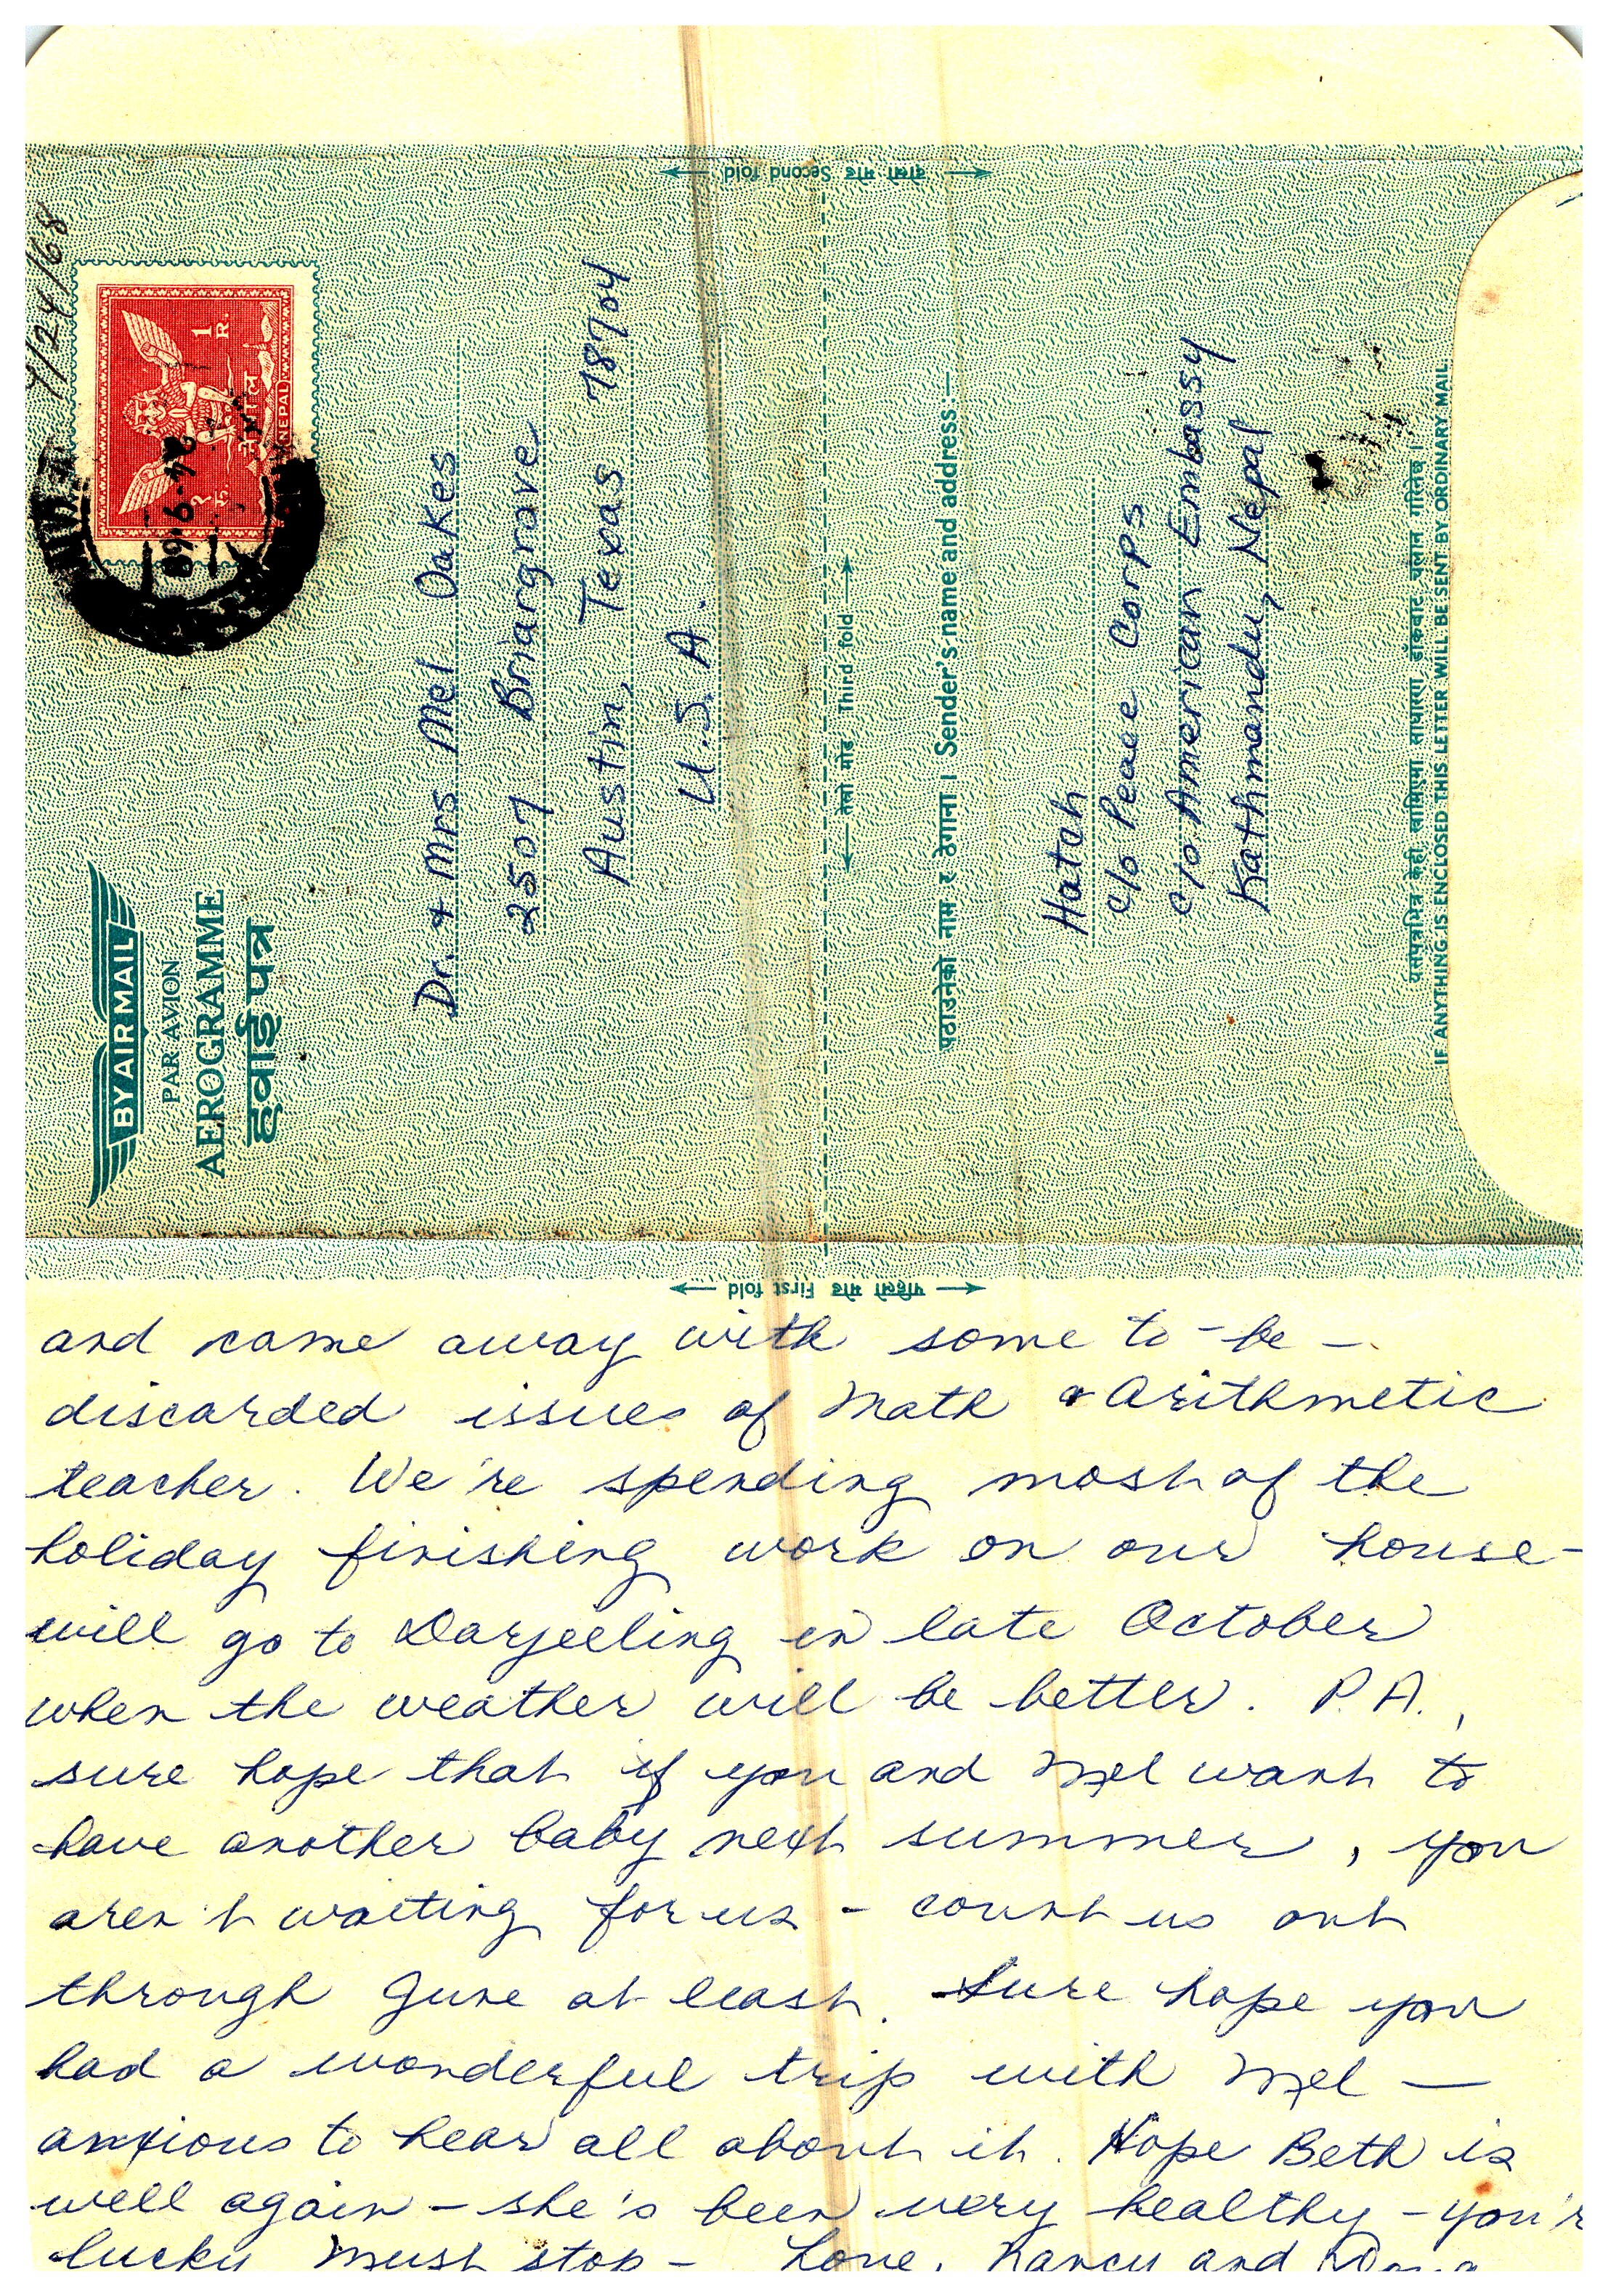 9/24/68
नेपाल
NEPAL
1 R.
१ रु.
24·9·68
BY AIR MAIL
PAR AVION
AEROGRAMME
हवाई पत्र
Dr. & Mrs Mel Oakes
2507 Briargrove
Austin, Texas 78704
U.S.A.
दोस्रो मोड Second fold
तेस्रो मोड Third fold
पठाउनेको नाम र ठेगाना । Sender's name and address:—
Hatch
c/o Peace Corps
c/o American Embassy
Kathmandu, Nepal
यसपत्रभित्र केही खामिएमा साधारण डाँकबाट चलान गरिनेछ ।
IF ANYTHING IS ENCLOSED THIS LETTER WILL BE SENT BY ORDINARY MAIL
पहिलो मोड First fold
and came away with some to-be-
discarded issues of Math & Arithmetic
teacher. We're spending most of the
holiday finishing work on our house-
will go to Darjeeling in late October
when the weather will be better. P.A.,
sure hope that if you and Mel want to
have another baby next summer, you
aren't waiting for us - count us out
through June at least. Sure hope you
had a wonderful trip with Mel —
anxious to hear all about it. Hope Beth is
well again - she's been very healthy - you'r
lucky Must stop - Love, Nancy and Doug